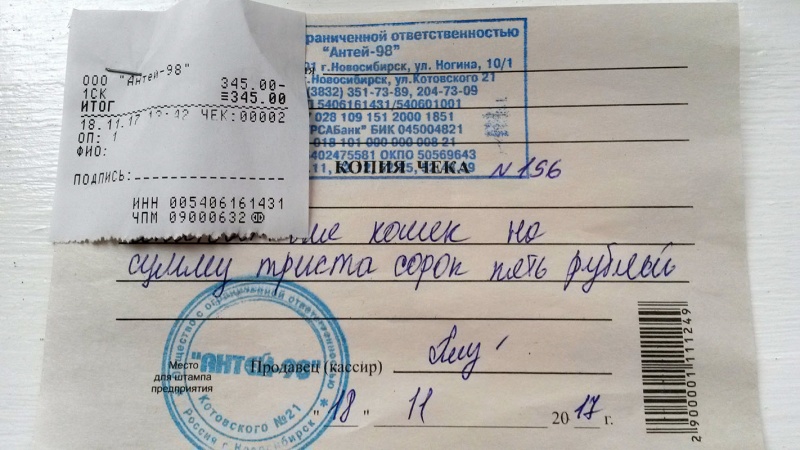 ООО "Антей-98"
1СК 345.00-
ИТОГ ≡345.00
18.11.17 ЧЕК:00002
ОП: 1
ФИО:
ПОДПИСЬ:
ИНН 005406161431
ЧПМ 09000632
раниченной ответственностью
"Антей-98"
01 г.Новосибирск, ул. Ногина, 10/1
.Новосибирск, ул.Котовского 21
(3832) 351-73-89, 204-73-09
5406161431/540601001
028 109 151 2000 1851
РСАБанк" БИК 045004821
018 101 000 000 008 21
402475581 ОКПО 50569643
КОПИЯ ЧЕКА N 156
кошек на
сумму триста сорок пять рублей
Общество с ограниченной ответственностью
"АНТЕЙ-98"
Котовского №21
Россия г.Новосибирск
Место
для штампа
предприятия
Продавец (кассир)
"18" 11 2017 г.
2900001111249